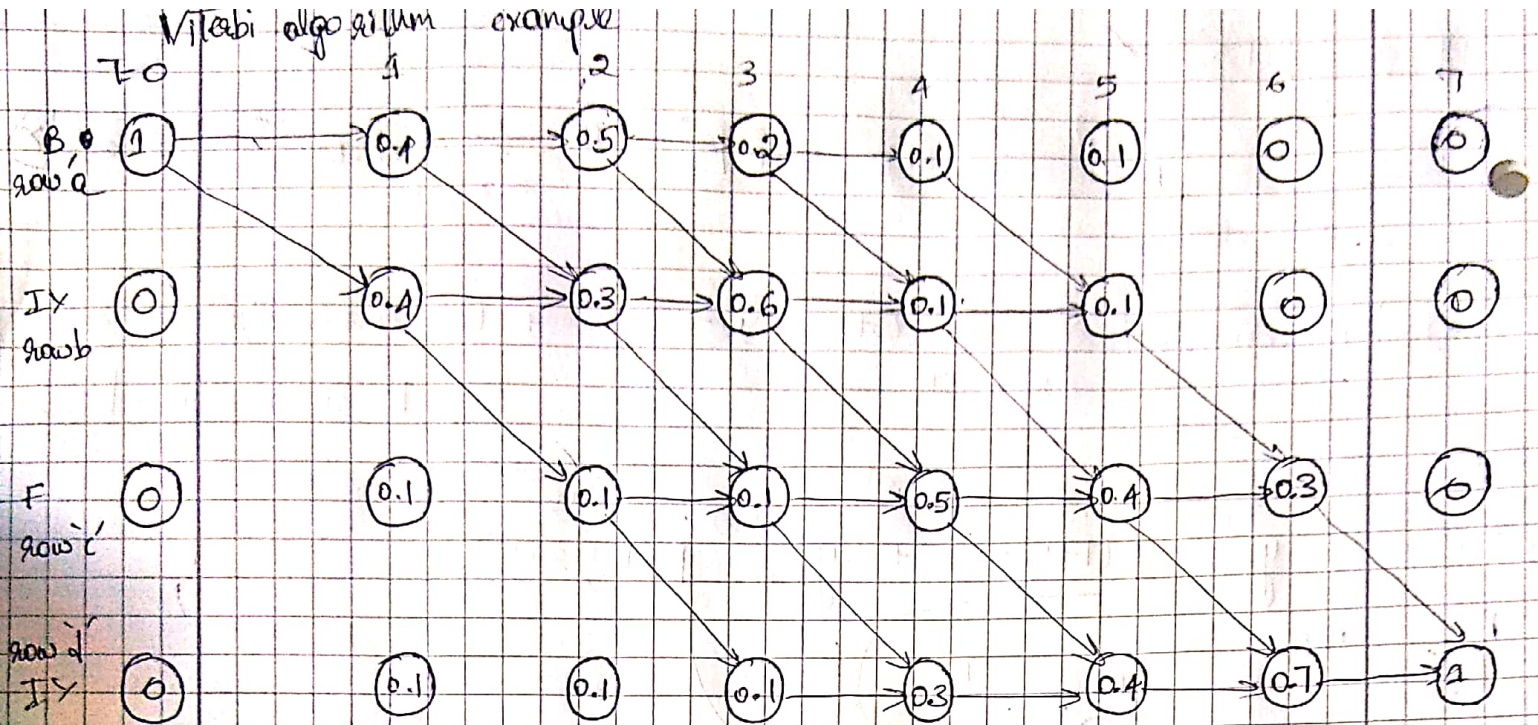 Viterbi algorithm example
t=0 1 2 3 4 5 6 7
B 1 0.4 0.5 0.2 0.1 0.1 0 0
row 'a'
IY 0 0.4 0.3 0.6 0.1 0.1 0 0
row b
F 0 0.1 0.1 0.1 0.5 0.4 0.3 0
row 'c'
row 'd'
IY 0 0.1 0.1 0.1 0.3 0.4 0.7